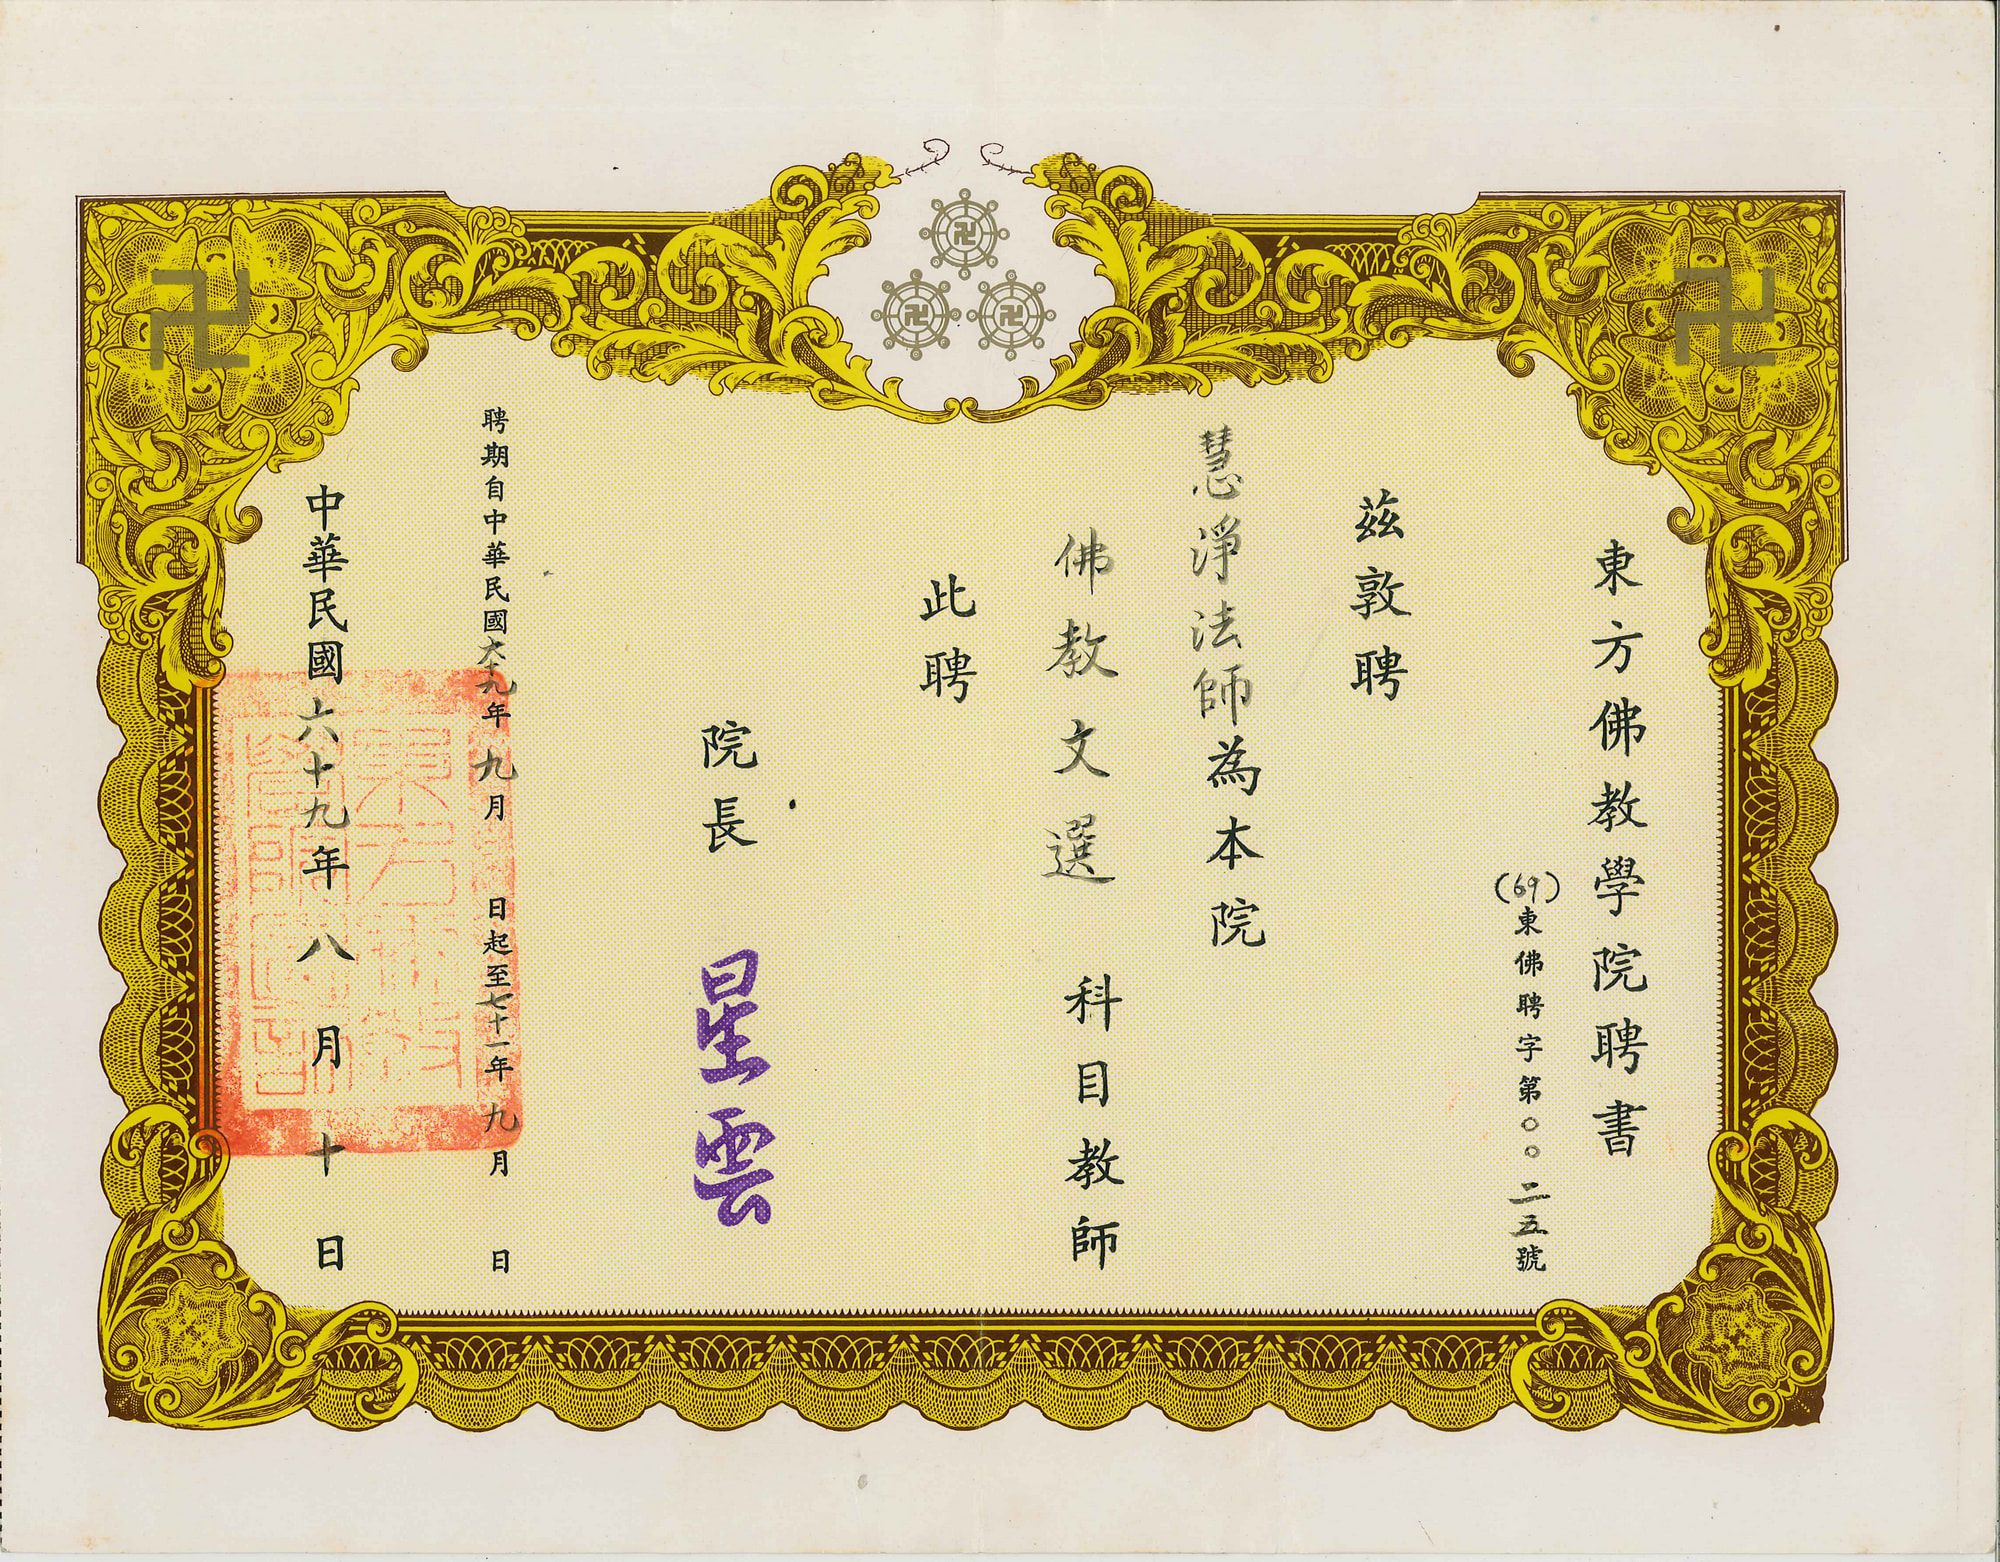 東方佛教學院聘書
(69)東佛聘字第○○二五號
茲敦聘
慧淨法師為本院
佛教文選 科目教師
此聘
院長 星雲
聘期自中華民國六十九年九月 日起至七十一年九月 日
中華民國六十九年八月十日